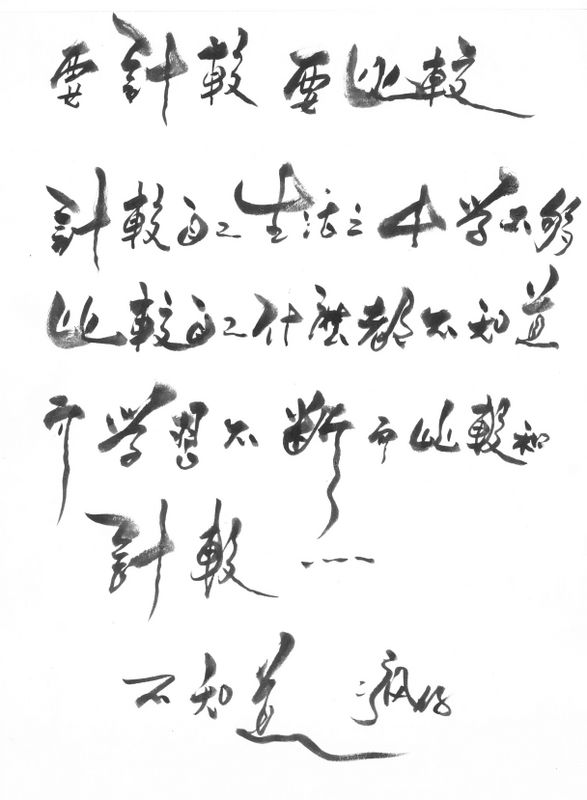 要計較 要比較
計較自己生活之中学不够
比較自己什麽都不知道
而学習不断而比較和
計較……
不知道